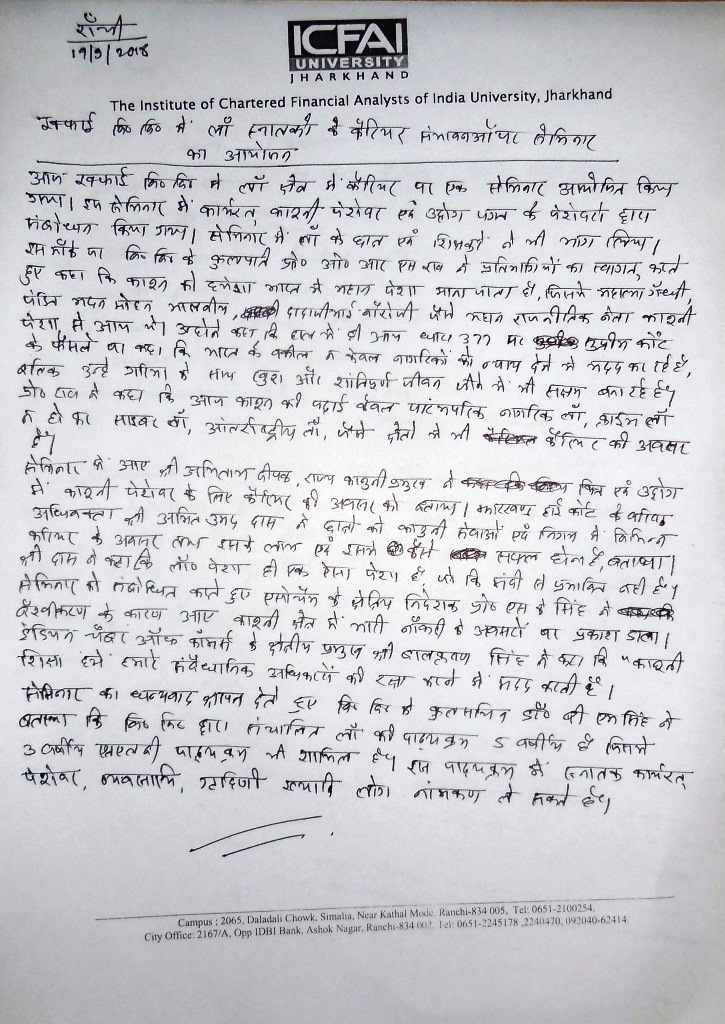 राँची
19/9/2018
ICFAI
UNIVERSITY
JHARKHAND
The Institute of Chartered Financial Analysts of India University, Jharkhand
इक्फाई वि० वि० में लॉ स्नातकों के कैरियर संभावनाओं पर सेमिनार
का आयोजन
आज इक्फाई वि० वि० में लॉ क्षेत्र में कैरियर पर एक सेमिनार आयोजित किया
गया। इस सेमिनार में कार्यरत, कानूनी पेशेवर एवं उद्योग जगत के पेशेवरों द्वारा
संबोधन किया गया। सेमिनार में लॉ के छात्र एवं शिक्षकों ने भी भाग लिया।
इस मौके पर वि० वि० के कुलपति प्रो० ओ० आर एस राव ने प्रतिभागियों का स्वागत करते
हुए कहा कि कानून को हमेशा भारत में महान पेशा माना जाता है, जिसमे महात्मा गाँधी,
पंडित मदन मोहन मालवीय, दादाभाई नौरोजी जैसे महान राजनीतिक नेता कानूनी
पेशा से आए थे। उन्होंने कहा कि हाल में ही आए धारा 377 पर सुप्रीम कोर्ट
के फैसले पर कहा कि भारत के वकील न केवल नागरिकों को न्याय देने में मदद कर रहे हैं,
बल्कि उन्हें गरिमा के साथ और शांतिपूर्ण जीवन जीने में भी सक्षम बना रहे हैं।
प्रो० राव ने कहा कि आज कानून की पढ़ाई केवल पारंपरिक नागरिक लॉ, क्राइम लॉ
न हो कर साइबर लॉ, आंतर्राष्ट्रीय लॉ, जैसे क्षेत्रों में भी कैरियर की अवसर
है।
सेमिनार में आए श्री अमिताभ दीपक, राज्य कानूनी प्रमुख ने वित्त एवं उद्योग
में कानूनी पेशेवर के लिए कैरियर की अवसर को बताया। झारखण्ड हाई कोर्ट के वरिष्ठ
अधिवक्ता श्री अमित दास ने छात्रों को कानूनी सेवाओं एवं निगम में विभिन्न
करियर के अवसर तथा इसके लाभ एवं इसमे कैसे सफल होना है, बताया।
श्री दास ने कहा कि लॉ पेशा ही एक ऐसा पेशा है, जो कि मंदी से प्रभावित नहीं है।
सेमिनार को संबोधित करते हुए एसोचैम के क्षेत्रिय निदेशक प्रो० एस के सिंह ने
वैश्वीकरण के कारण आए कानूनी क्षेत्र में भारी नौकरी के अवसरों पर प्रकाश डाला।
इंडियन चैंबर ऑफ कॉमर्स के क्षेत्रीय प्रमुख श्री बालकृष्ण सिंह ने कहा कि "कानूनी
शिक्षा हमें हमारे संवैधानिक अधिकारों की रक्षा करने में मदद करती है।
सेमिनार का धन्यवाद ज्ञापन देते हुए वि० वि० के कुलसचिव डॉ० बी एम सिंह ने
बताया कि वि० वि० द्वारा संचालित लॉ की पाठ्यक्रम 5 वर्षीय है जिसमे
3 वर्षीय एलएलबी पाठ्यक्रम भी शामिल है। इस पाठ्यक्रम में स्नातक कार्यरत्
पेशेवर, व्यवसायि, गृहिणी इत्यादि लोग नामंकण ले सकते है।
Campus : 2065, Daladali Chowk, Simalia, Near Kathal Mode. Ranchi-834 005, Tel: 0651-2100254,
City Office: 2167/A, Opp IDBI Bank, Ashok Nagar, Ranchi-834 002. Tel: 0651-2245178 ,2240470, 092040-62414.